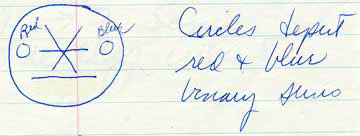 Red
Blue
Circles depict
red & blue
binary suns